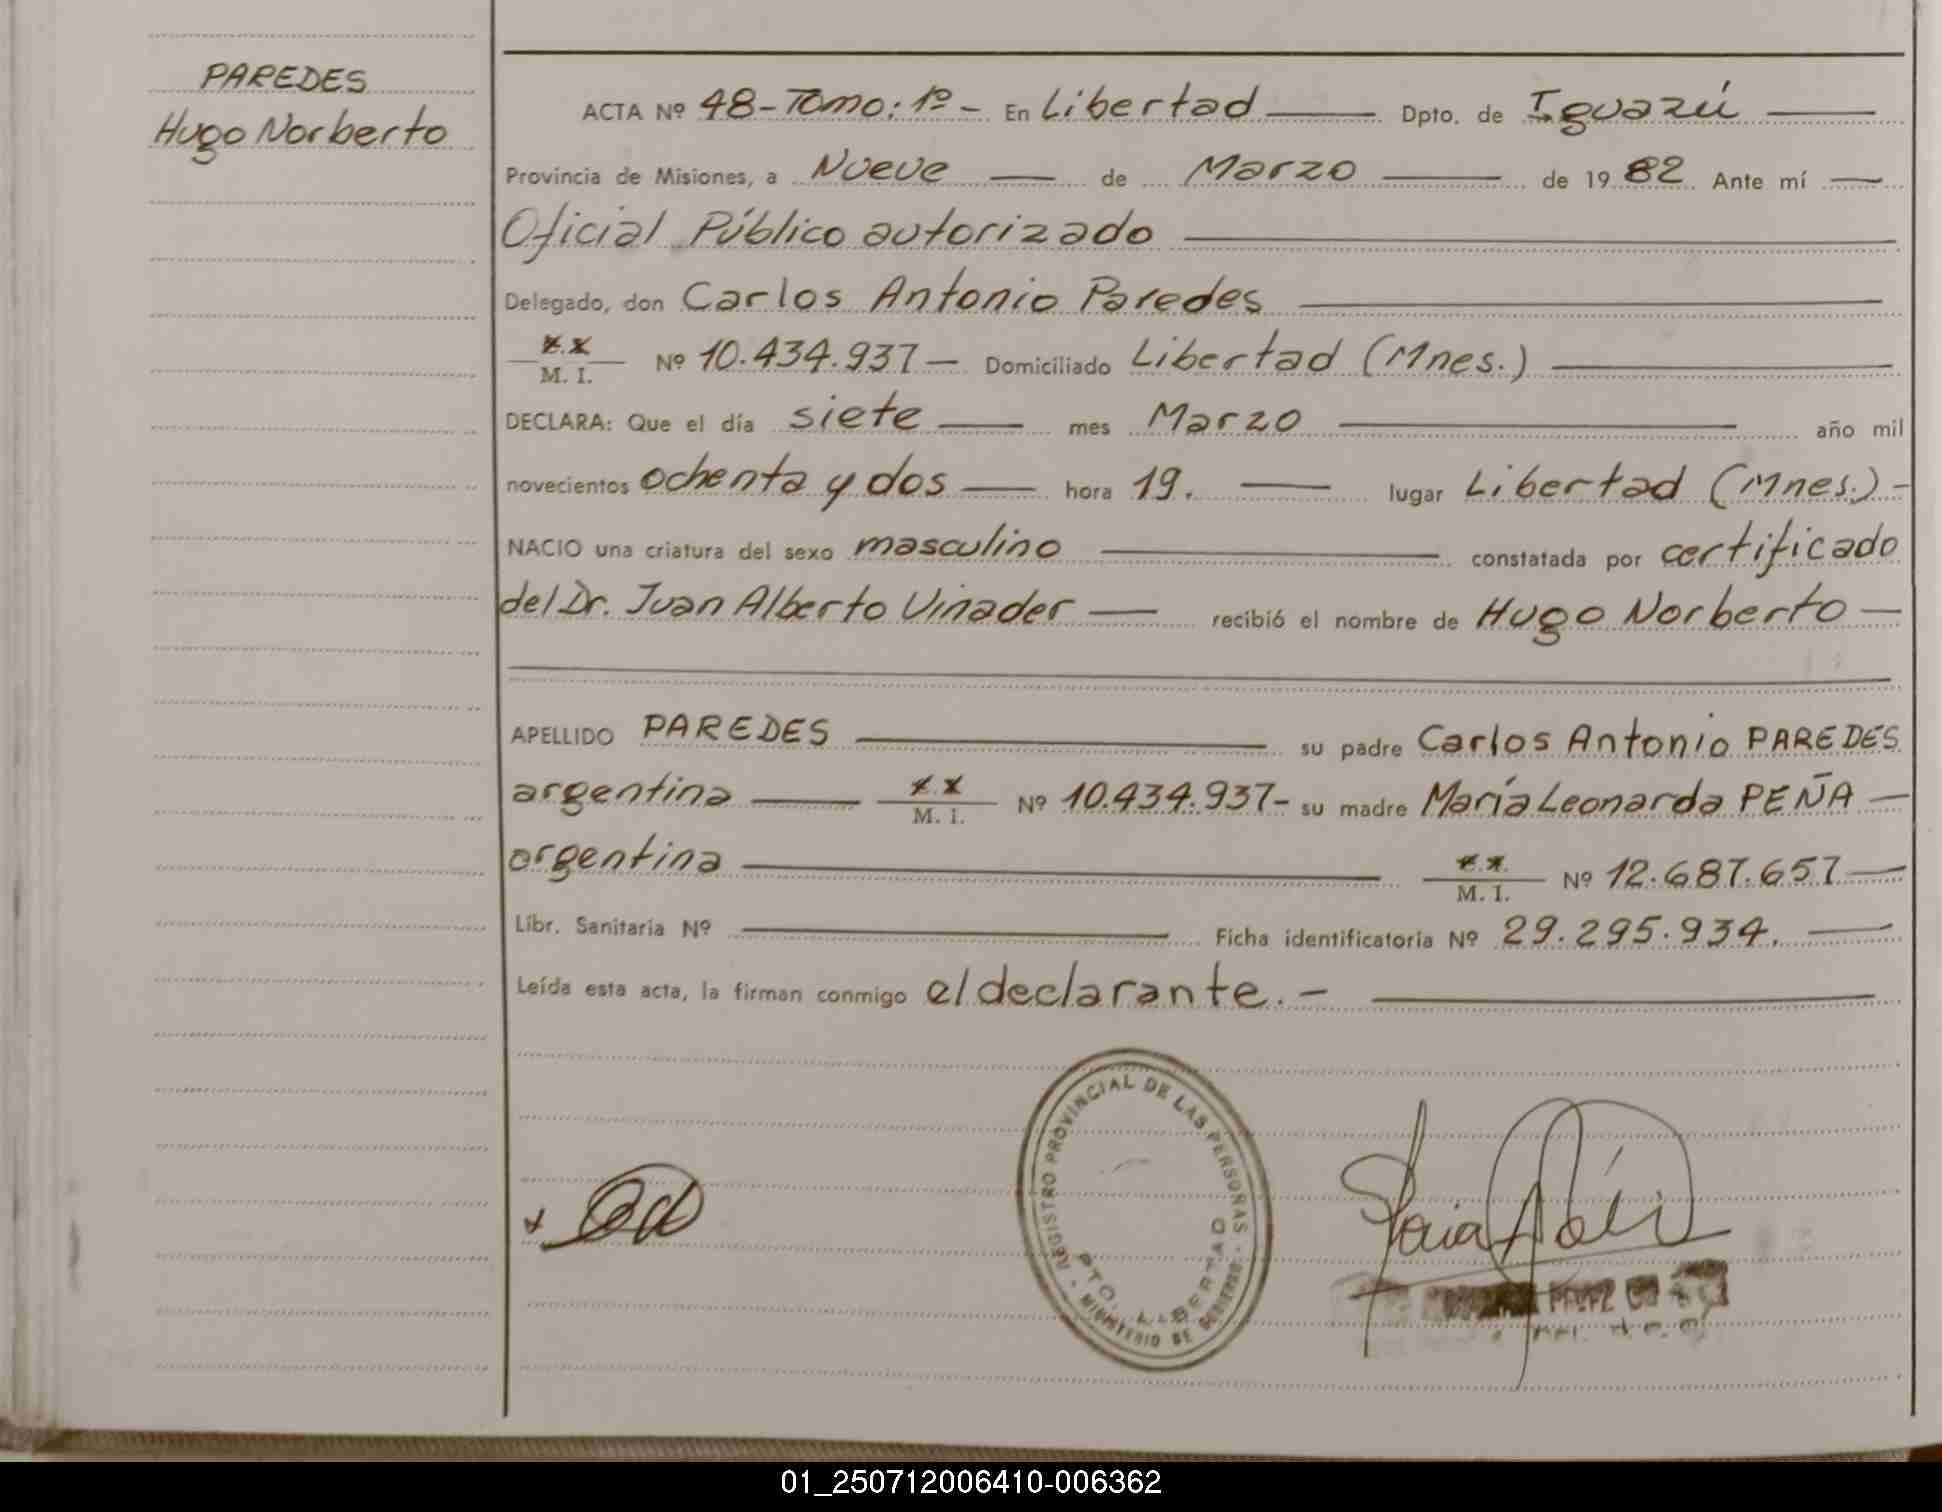 PAREDES
Hugo Norberto
ACTA Nº 48-Tomo: 1º - En Libertad Dpto. de Iguazú
Provincia de Misiones, a Nueve de Marzo de 1982 Ante mí
Oficial Público autorizado
Delegado, don Carlos Antonio Paredes
M. I. Nº 10.434.937 - Domiciliado Libertad (Mnes.)
DECLARA: Que el día siete mes Marzo año mil
novecientos ochenta y dos hora 19. lugar Libertad (Mnes.) -
NACIO una criatura del sexo masculino constatada por certificado
del Dr. Juan Alberto Vinader recibió el nombre de Hugo Norberto
APELLIDO PAREDES su padre Carlos Antonio PAREDES
argentina M. I. Nº 10.434.937- su madre María Leonarda PEÑA
argentina M. I. Nº 12.687.657
Libr. Sanitaria Nº Ficha identificatoria Nº 29.295.934.
Leída esta acta, la firman conmigo el declarante. -
REGISTRO PROVINCIAL DE LAS PERSONAS - MINISTERIO DE GOBIERNO -
PTO. LIBERTAD
01_250712006410-006362